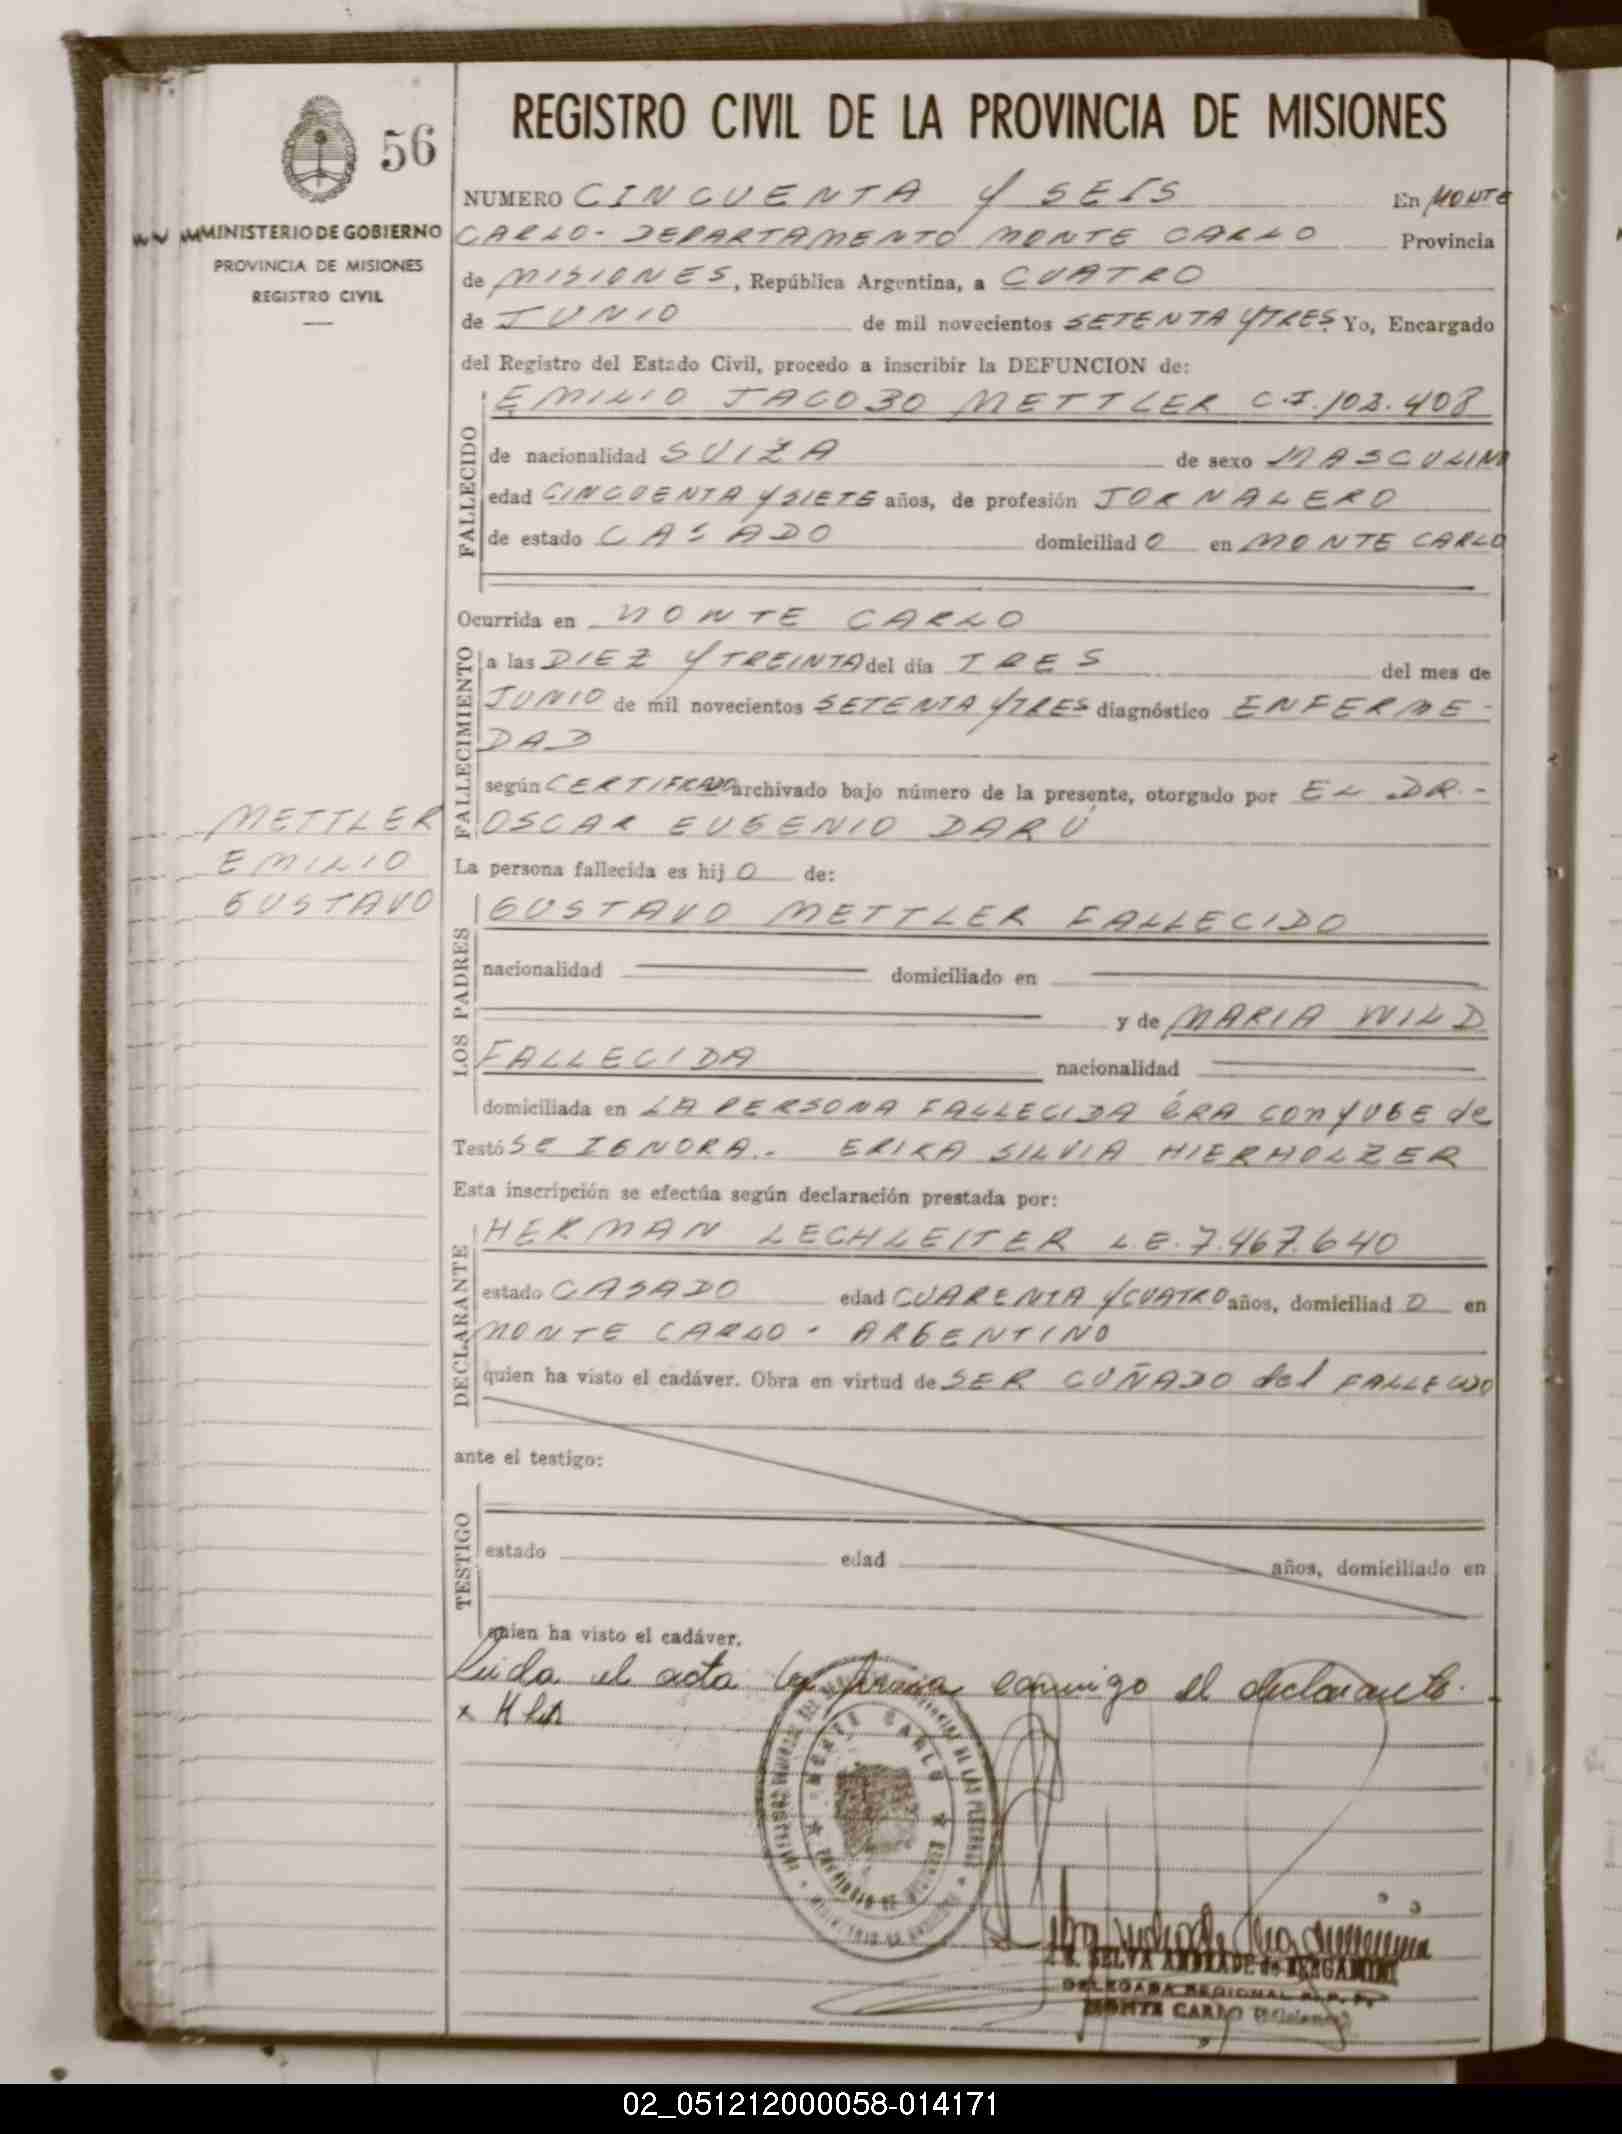 56
MINISTERIO DE GOBIERNO
PROVINCIA DE MISIONES
REGISTRO CIVIL
METTLER
EMILIO
GUSTAVO
REGISTRO CIVIL DE LA PROVINCIA DE MISIONES
NUMERO CINCUENTA Y SEIS En MONTE
CARLO - DEPARTAMENTO MONTE CARLO Provincia
de MISIONES, República Argentina, a CUATRO
de JUNIO de mil novecientos SETENTA Y TRES Yo, Encargado
del Registro del Estado Civil, procedo a inscribir la DEFUNCION de:
FALLECIDO
EMILIO JACOBO METTLER C.I. 103.408
de nacionalidad SUIZA de sexo MASCULINO
edad CINCUENTA Y SIETE años, de profesión JORNALERO
de estado CASADO domiciliad O en MONTE CARLO
Ocurrida en MONTE CARLO
FALLECIMIENTO
a las DIEZ Y TREINTA del día TRES del mes de
JUNIO de mil novecientos SETENTA Y TRES diagnóstico ENFERME-
DAD
según CERTIFICADO archivado bajo número de la presente, otorgado por EL DR.-
OSCAR EUGENIO DARÚ
La persona fallecida es hij O de:
LOS PADRES
GUSTAVO METTLER FALLECIDO
nacionalidad domiciliado en
y de MARIA WILD
FALLECIDA nacionalidad
domiciliada en LA PERSONA FALLECIDA ERA conyUGE de
Testó SE IGNORA.- ERIKA SILVIA HIERHOLZER
Esta inscripción se efectúa según declaración prestada por:
DECLARANTE
HERMAN LECHLEITER L.E. 7.467.640
estado CASADO edad CUARENTA Y CUATRO años, domiciliad O en
MONTE CARLO - ARGENTINO
quien ha visto el cadáver. Obra en virtud de SER CUÑADO del FALLECIDO
ante el testigo:
TESTIGO
estado edad años, domiciliado en
quien ha visto el cadáver.
Leida el acta la firma conmigo el declarante.
MONTE CARLO
SELVA ANDRADE de BERGAMINI
DELEGADA REGIONAL R.P.P.
MONTE CARLO (Misiones)
02_051212000058-014171